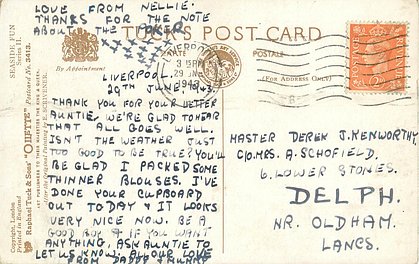 LOVE FROM NELLIE.
THANKS FOR THE NOTE
ABOUT THE
TUCK'S POST CARD
CARTE POSTALE
(FOR ADDRESS ONLY)
By Appointment
LIVERPOOL
3 15 PM
29 JNE
LIVERPOOL.
29TH JUNE, 1948
THANK YOU FOR YOUR LETTER
AUNTIE. WE'RE GLAD TO HEAR
THAT ALL GOES WELL.
ISN'T THE WEATHER JUST
TOO GOOD TO BE TRUE? YOU'LL
BE GLAD I PACKED SOME
THINNER BLOUSES. I'VE
DONE YOUR CUPBOARD
OUT TODAY & IT LOOKS
VERY NICE NOW. BE A
GOOD BOY & IF YOU WANT
ANYTHING, ASK AUNTIE TO
LET US KNOW. ALL OUR LOVE
FROM DADDY & MUMMY
MASTER DEREK J. KENWORTHY,
C/O. MRS. A. SCHOFIELD,
6, LOWER STONES,
DELPH.
NR. OLDHAM.
LANCS.
SEASIDE FUN
Series II.
Raphael Tuck & Sons' "OILETTE" Postcard No. 3413.
ART PUBLISHERS TO THEIR MAJESTIES THE KING & QUEEN.
After the Original Painting by E. SCRIVENER.
Copyright, London.
Printed in England